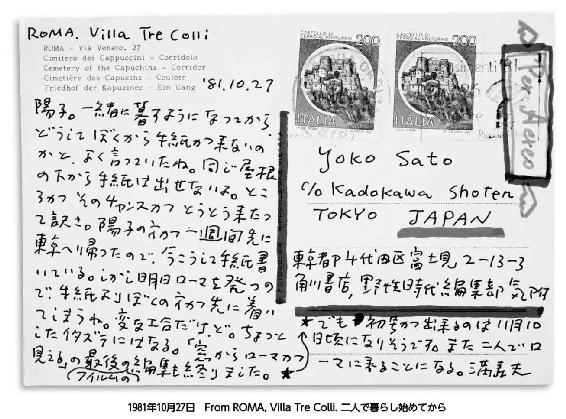 ROMA. Villa Tre Colli
ROMA - Via Veneto, 27
Cimitero dei Cappuccini - Corridoio
Cemetery of the Capuchins - Corridor
Cimetière des Capucins - Couloir
Friedhof der Kapuziner - Ein Gang
'81.10.27
陽子。一緒に暮すようになってから、
どうしてぼくから手紙が来ないの
かと、よく言っていたね。同じ屋根
の下から手紙は出せないよ。とこ
ろがそのチャンスがとうとう来たっ
て訳さ。陽子の方が一週間先に
東京へ帰ったので、今こうして手紙書
いている。しかし明日ローマを発つの
で、手紙よりぼくの方が先に着い
てしまうね。変な工合だけど。ちょっと
したイタズラにはなる。「窓からローマが
見える」の最後の編集も終りました。★
(フィルムの)
CASTELLO DI
CERRO AL VOLTURNO
200
ITALIA
CASTELLO DI
CERRO AL VOLTURNO
200
ITALIA
Per Aereo
Yoko Sato
c/o Kadokawa Shoten
TOKYO JAPAN
東京都千代田区富士見2-13-3
角川書店,野性時代編集部気付
★でも初号が出来るのは11月10
日頃になりそうです。また二人でロ
ーマに来ることになる。満寿夫
1981年10月27日 From ROMA. Villa Tre Colli. 二人で暮らし始めてから